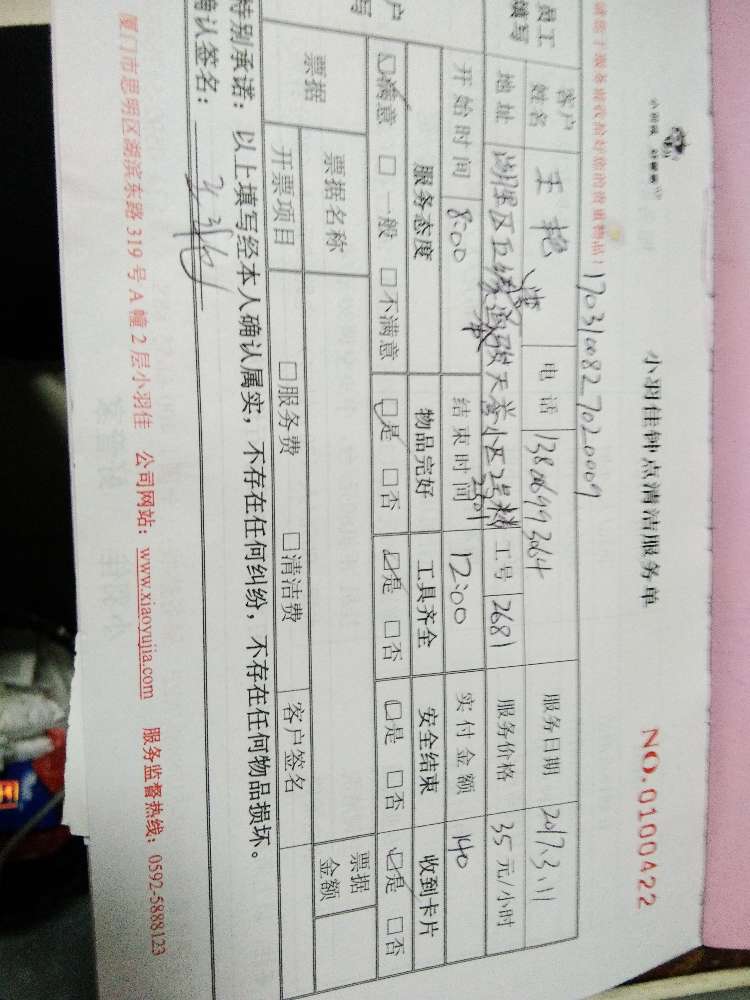 小羽佳钟点清洁服务单
NO.0100422
小羽佳 好管家
1703100827020009
客户姓名 王艳 电话 13806993664 服务日期 2017.3.11
员工填写 地址 2301 工号 2681 服务价格 35元/小时
开始时间 8:00 结束时间 12:00 实付金额 140
服务态度 物品完好 工具齐全 安全结束 收到卡片
☑满意 □一般 □不满意 ☑是 □否 ☑是 □否 ☑是 □否 ☑是 □否
票据 票据名称 票据金额
开票项目 □服务费 □清洁费 客户签名
特别承诺：以上填写经本人确认属实，不存在任何纠纷，不存在任何物品损坏。
确认签名：
厦门市思明区湖滨东路319号A幢2层小羽佳 公司网站：www.xiaoyujia.com 服务监督热线：0592-5888123